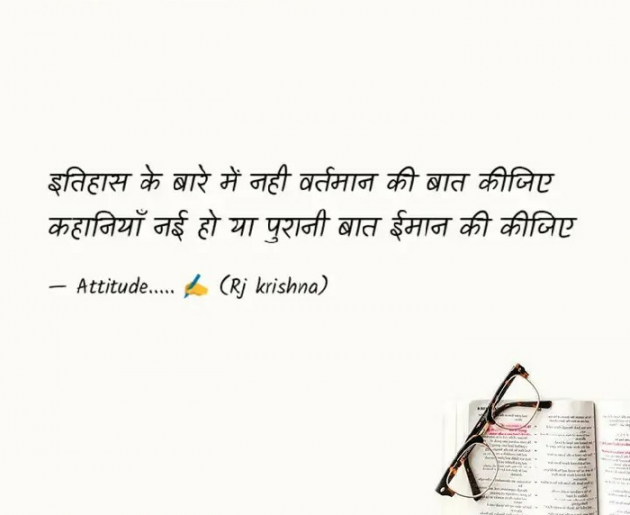 इतिहास के बारे में नही वर्तमान की बात कीजिए
कहानियाँ नई हो या पुरानी बात ईमान की कीजिए
— Attitude..... ✍️ (Rj krishna)